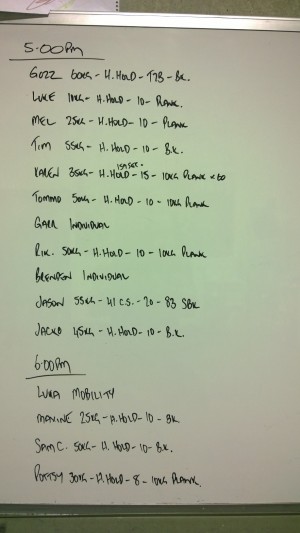 5:00PM
GOZZ 60KG - H.HOLD - T2B - B.K.
LUKE 10KG - H.HOLD - 10 - PLANK.
MEL 25KG - H.HOLD - 10 - PLANK
TIM 55KG - H.HOLD - 10 - B.K.
1ST SET.
KAREN 35KG - H.HOLD - 15 - 10KG PLANK x 60
TOMMO 50KG - H.HOLD - 10 - 10KG PLANK
GARR INDIVIDUAL
RIK. 50KG - H.HOLD - 10 - 10KG PLANK
BRENDEN INDIVIDUAL
JASON 55KG - 41 C.S. - 20 - 83 SBK
JACKO 45KG - H.HOLD - 10 - B.K.
6:00PM
LUKA MOBILITY
MAXINE 25KG - H.HOLD - 10 - BK
SAM C. 50KG - H.HOLD - 10 - B.K.
POTTSY 30KG - H.HOLD - 8 - 10KG PLANK.